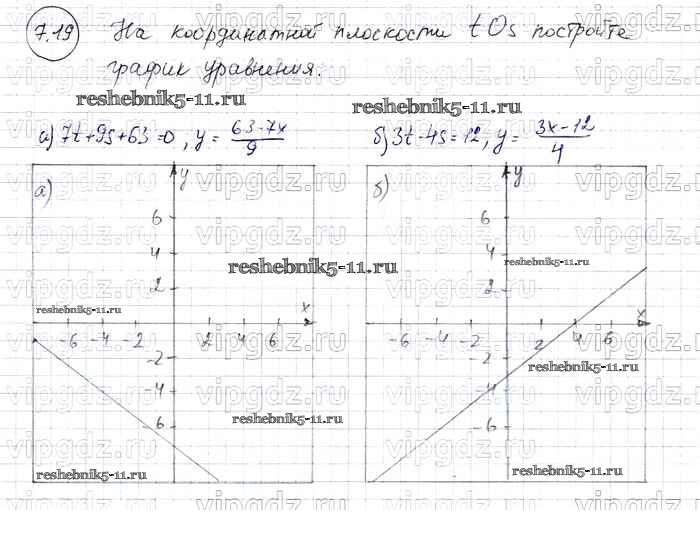 7.19 На координатной плоскости tOs постройте
график уравнения.
reshebnik5-11.ru reshebnik5-11.ru
а) 7t+9s+63=0, y = (63-7x)/9 б) 3t-4s=12, y = (3x-12)/4
а) y б) y
6 6
4 4
reshebnik5-11.ru reshebnik5-11.ru
2 2
reshebnik5-11.ru
x x
-6 -4 -2 2 4 6 -6 -4 -2 2 4 6
-2 -2
reshebnik5-11.ru
-4 -4
reshebnik5-11.ru
-6 -6
reshebnik5-11.ru reshebnik5-11.ru
vipgdz.ru vipgdz.ru vipgdz.ru vipgdz.ru